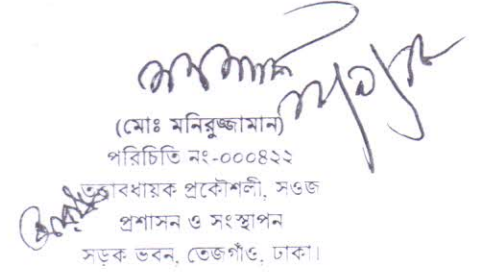 (মোঃ মনিরুজ্জামান)
পরিচিতি নং-০০০৪২২
তত্ত্বাবধায়ক প্রকৌশলী, সওজ
প্রশাসন ও সংস্থাপন
সড়ক ভবন, তেজগাঁও, ঢাকা।